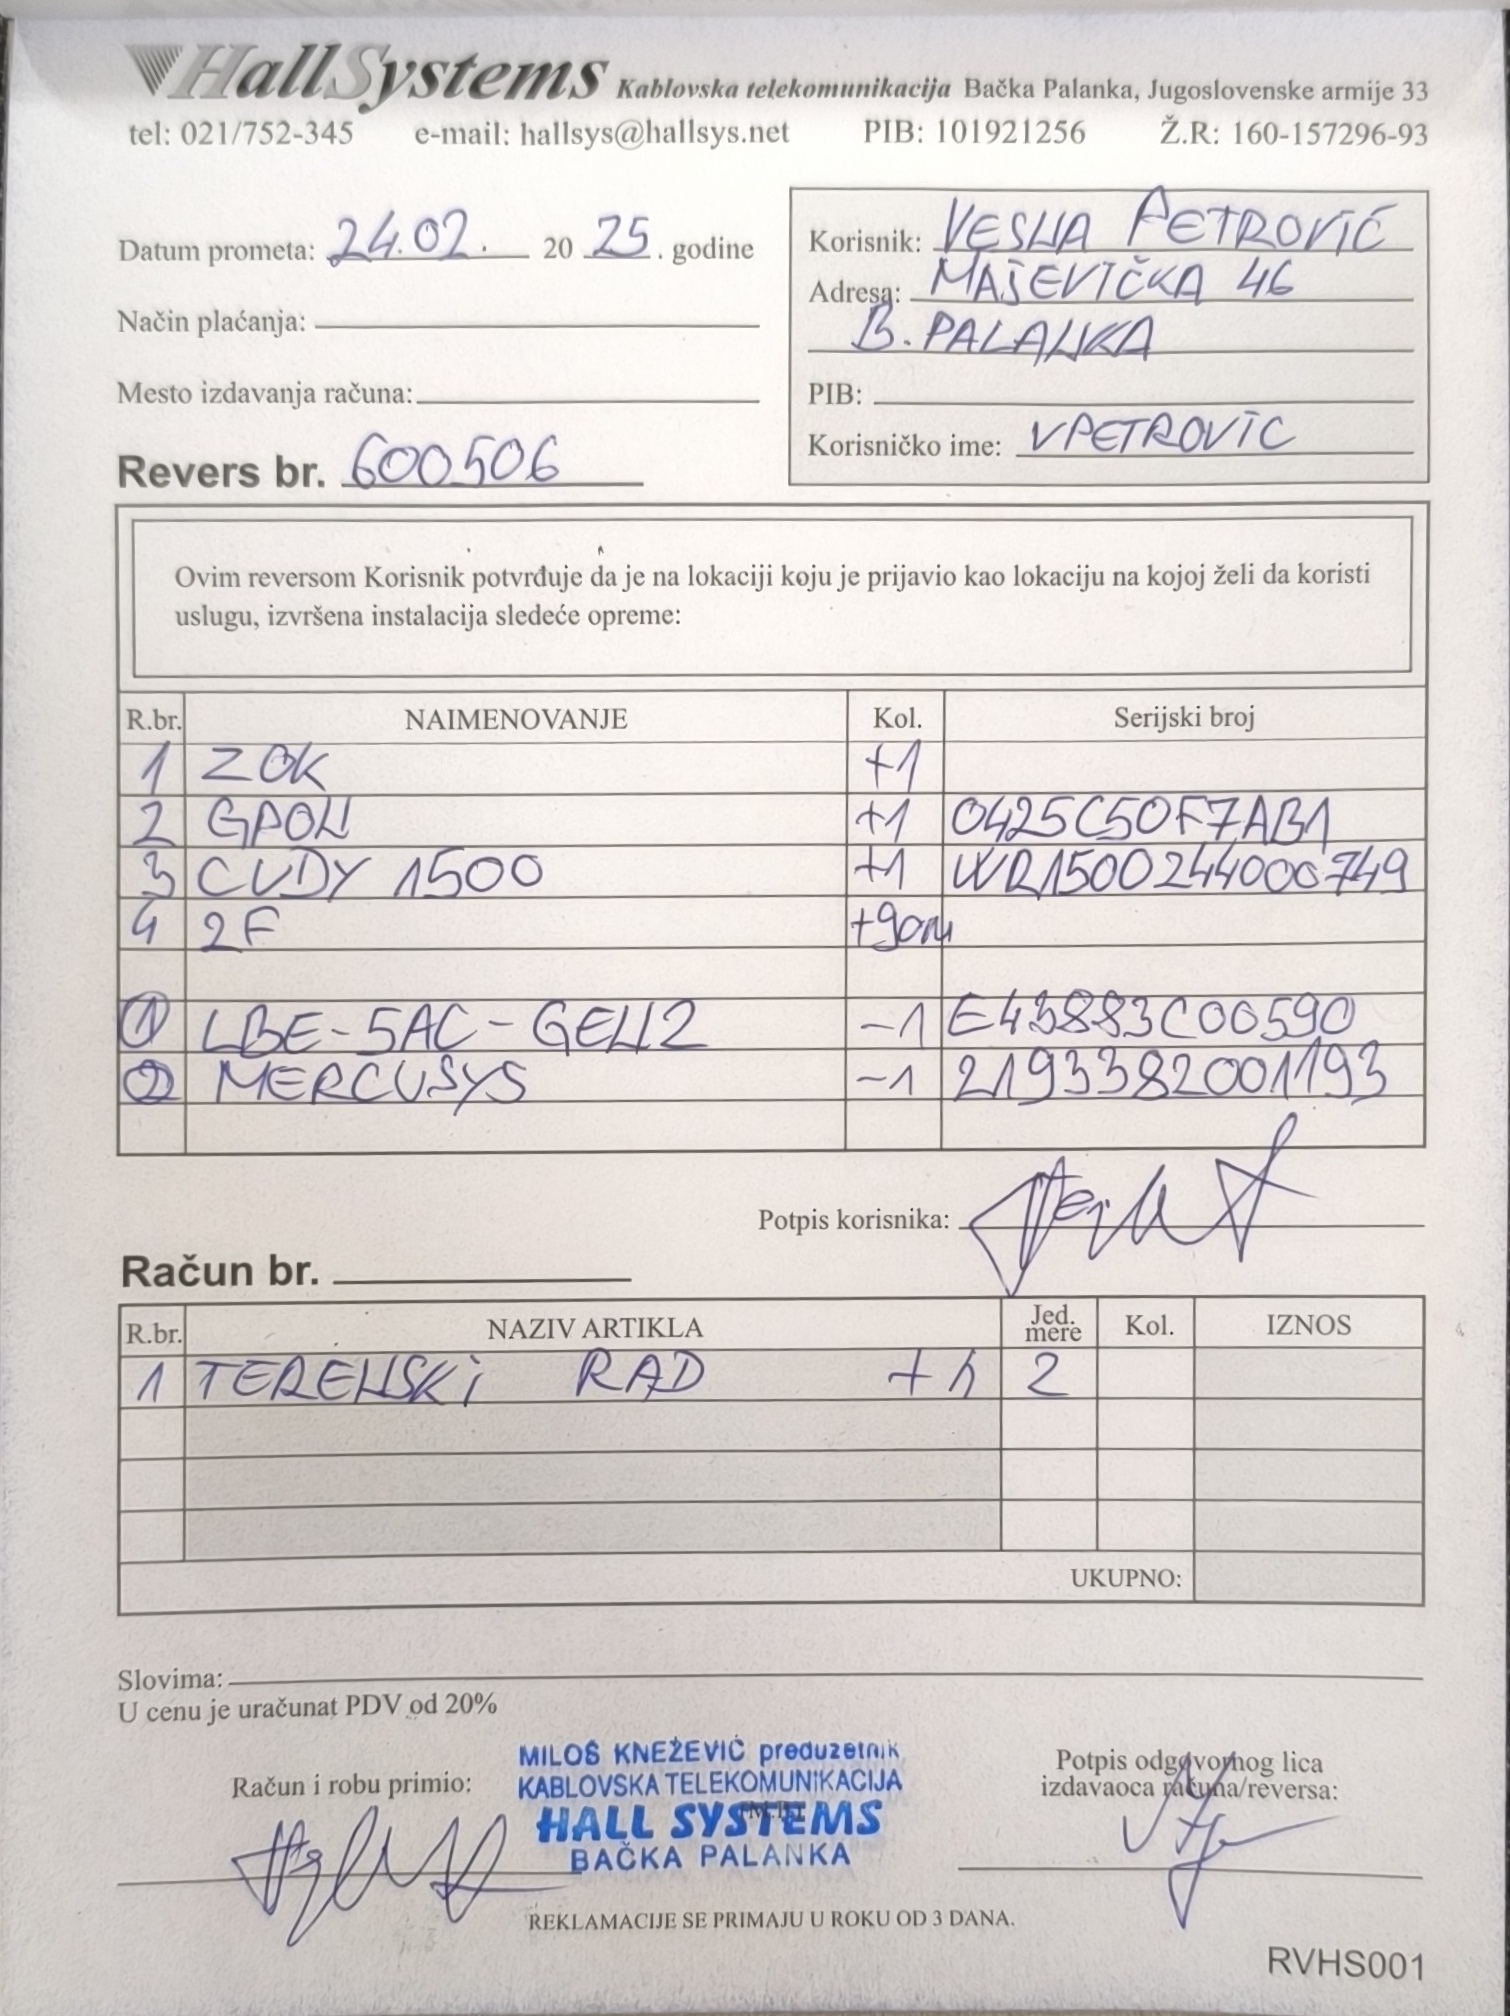 HallSystems Kablovska telekomunikacija Bačka Palanka, Jugoslovenske armije 33
tel: 021/752-345 e-mail: hallsys@hallsys.net PIB: 101921256 Ž.R: 160-157296-93
Datum prometa: 24.02. 20 25. godine
Način plaćanja:
Mesto izdavanja računa:
Revers br. 600506
Korisnik: VESNA PETROVIĆ
Adresa: MAJEVIČKA 46
B. PALANKA
PIB:
Korisničko ime: VPETROVIC
Ovim reversom Korisnik potvrđuje da je na lokaciji koju je prijavio kao lokaciju na kojoj želi da koristi
uslugu, izvršena instalacija sledeće opreme:
R.br. NAIMENOVANJE Kol. Serijski broj
1 ZOK +1
2 GPON +1 0425C50F7AB1
3 CUDY 1500 +1 WR1500244000749
4 2F +90m
1 LBE-5AC-GEN2 -1 E43883C00590
2 MERCUSYS -1 2193382001193
Potpis korisnika:
Račun br.
R.br. NAZIV ARTIKLA Jed. mere Kol. IZNOS
1 TERENSKI RAD + h 2
UKUPNO:
Slovima:
U cenu je uračunat PDV od 20%
Račun i robu primio:
MILOŠ KNEŽEVIĆ preduzetnik
KABLOVSKA TELEKOMUNIKACIJA
HALL SYSTEMS
BAČKA PALANKA
Potpis odgovornog lica
izdavaoca računa/reversa:
REKLAMACIJE SE PRIMAJU U ROKU OD 3 DANA.
RVHS001